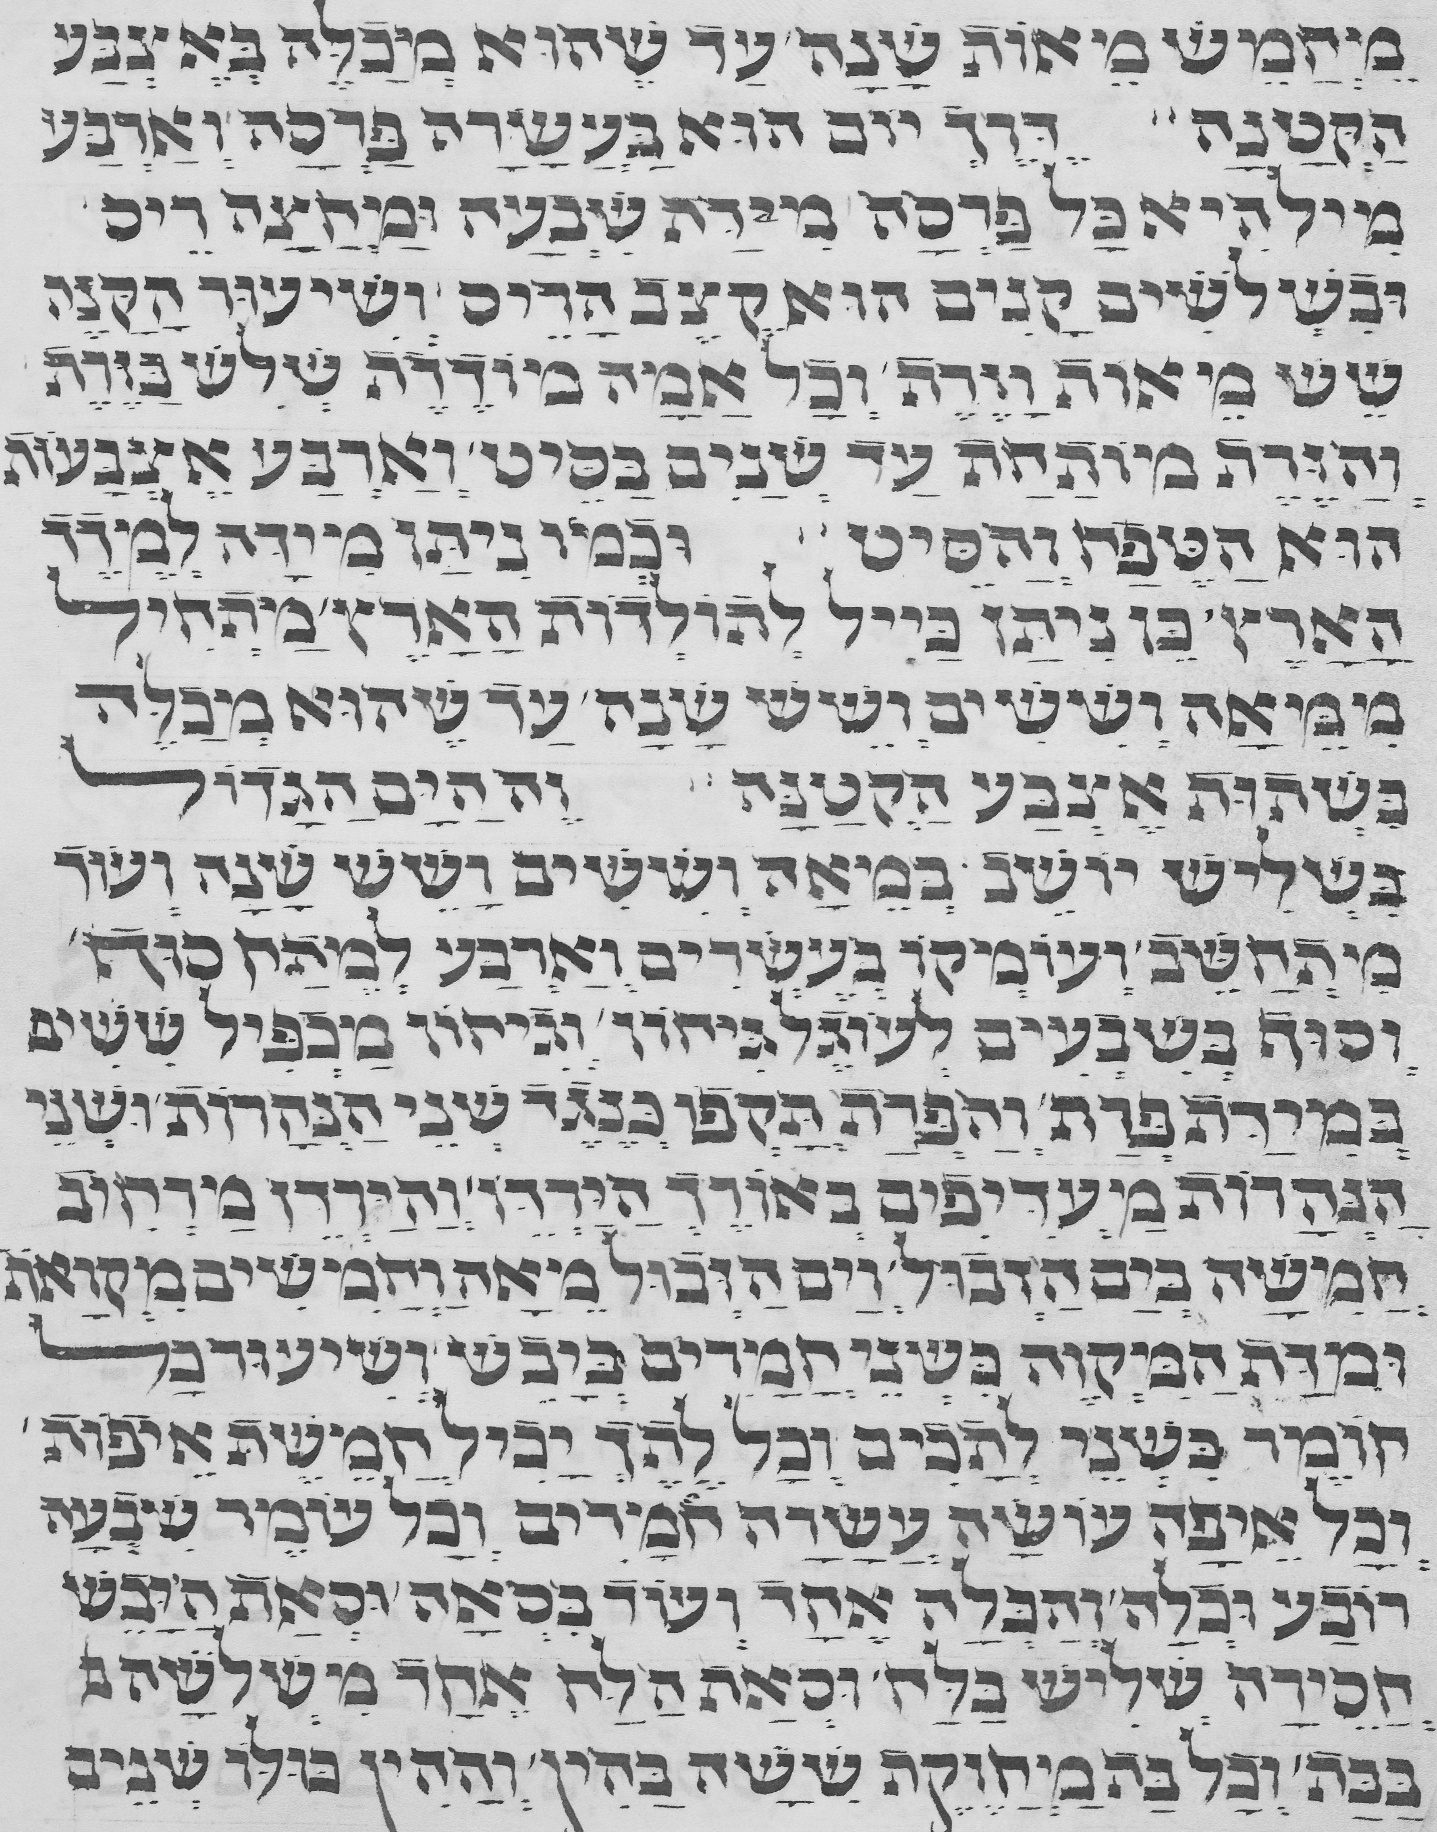 מֵיחֲמֵשׁ מֵאוֹת שָׁנָה עַד שֶׁהוּא מְכַלֶּה בְּאֶצְבַּע
הַקְּטַנָּה דֶּרֶךְ יוֹם הוּא בַּעֲשָׂרָה פַּרְסָה וְאַרְבַּע
מִיל הִיא כָּל פַּרְסָה מִידַּת שִׁבְעָה וּמַחֲצָה רִיס
וּבִשְׁלֹשִׁים קָנִים הוּא קֶצֶב הָרִיס וְשִׁיעוּר הַקָּנֶה
שֵׁשׁ מֵאוֹת וָזֶרֶת וְכָל אַמָּה מוֹדֶדֶת שְׁלֹשׁ בַּזֶּרֶת
וְהַזֶּרֶת מוֹתַחַת עַד שְׁנַיִם בַּסִּיט וְאַרְבַּע אֶצְבָּעוֹת
הוּא הַטֶּפַח וְהַסִּיט וּכְמוֹ נִיתַּן מִידָּה לְמֶדֶד
הָאָרֶץ כֵּן נִיתַּן כַּיִיל לְתוֹלְדוֹת הָאָרֶץ מַתְחִיל
מִמֵּאָה וְשִׁשִּׁים וְשֵׁשׁ שָׁנָה עַד שֶׁהוּא מְכַלֶּה
בְּשָׁתוּת אֶצְבַּע הַקְּטַנָּה וְזֶה הַיָּם הַגָּדוֹל
בִּשְׁלִישׁ יוֹשֵׁב בְּמֵאָה וְשִׁשִּׁים וְשֵׁשׁ שָׁנָה וְעוֹד
מִיתְחַשֵּׁב וְעוֹמְקוֹ בְּעֶשְׂרִים וְאַרְבַּע לְמַתַּח סוּף
וְסוּף בְּשִׁבְעִים לְעוֹגֶל גִּיחוֹן וְגִיחוֹן מַכְפִּיל שִׁשִּׁים
בְּמִידַּת פְּרָת וְהַפְּרָת הֶקֵּפוֹ כְּנֶגֶד שְׁנֵי הַנְּהָרוֹת וּשְׁנֵי
הַנְּהָרוֹת מַעֲדִיפִים בְּאוֹרֶךְ הַיַּרְדֵּן וְהַיַּרְדֵּן מַרְחִיב
חֲמִשָּׁה כְּיַם הַזְּבוּל וְיָם הַזְּבוּל מֵאָה וַחֲמִשִּׁים מִקְוָאֹת
וּמִדַּת הַמִּקְוֶה כִּשְׁנֵי חֳמָרִים בַּיָּבֵשׁ וְשִׁיעוּר כָּל
חוֹמֶר כִּשְׁנֵי לְתָכִים וְכָל לֶתֶךְ יָכִיל חֲמֵשֶׁת אֵיפוֹת
וְכָל אֵיפָה עוֹשָׂה עֲשָׂרָה עֳמָרִים וְכָל עוֹמֶר שִׁבְעָה
רוֹבַע וּכְלָה וְהַכְּלָה אֶחָד וְעוֹד בִּסְאָה וּסְאַת הַיָּבֵשׁ
חֲסֵירָה שְׁלִישׁ בַּלַּח וּסְאַת הַלַּח אַחַד מִשְּׁלֹשָׁה
בַּבַּת וְכָל בַּת מַחֲזֶקֶת שִׁשָּׁה בַּהִין וְהַהִין כּוּלּוֹ שְׁנַיִם